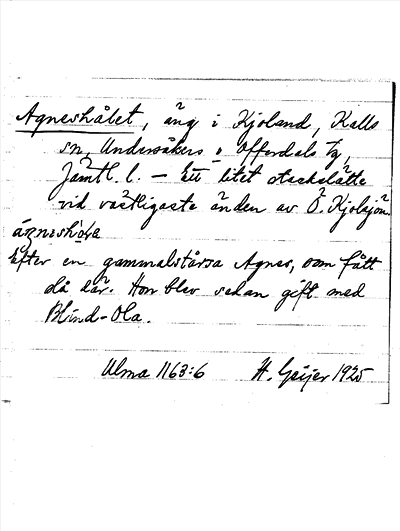 Agneshålet, äng i Kjoland, Kalls
sn, Undersåkers o Offerdals tg,
Jämtl. l. – Ett litet stackslätte
vid västligaste änden av Ö. Kjolsjön
Efter en gammalstärsa Agnes, som fått
då där. Hon blev sedan gift med
Blind-Ola.
Ulma 1163:6 H. Geijer 1925